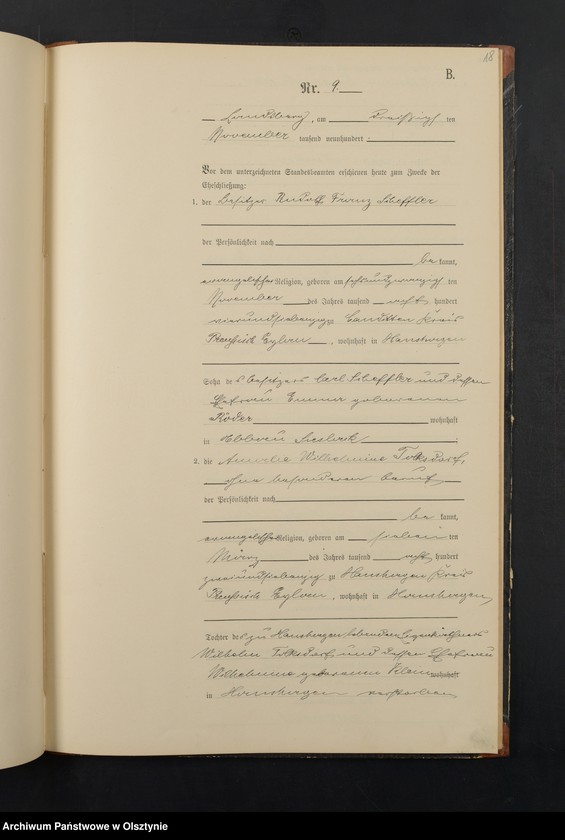 18
B.
Nr. 9
Landsberg, am dreißigsten
November tausend neunhundert
Vor dem unterzeichneten Standesbeamten erschienen heute zum Zwecke der
Eheschließung:
1. der Besitzer Rudolf Franz Scheffler
der Persönlichkeit nach
be kannt,
evangelischer Religion, geboren am sechsundzwanzigsten
November des Jahres tausend acht hundert
vierundsiebenzig zu Kreis
Preußisch Eylau, wohnhaft in
Sohn des Besitzers Carl Scheffler und dessen
Ehefrau Emma geborenen
wohnhaft
in Abbau
2. die Amalie Wilhelmine Tolksdorf,
ohne besonderen Beruf
der Persönlichkeit nach
be kannt,
evangelischer Religion, geboren am sieben ten
März des Jahres tausend acht hundert
zweiundsiebenzig zu Hansbergen Kreis
Preußisch Eylau, wohnhaft in Hansbergen,
Tochter des zu Hansbergen lebenden Eigenkäthners
Wilhelm Tolksdorf und dessen Ehefrau
Wilhelmine geborenen Klein wohnhaft
in Hansbergen verstorben
Archiwum Państwowe w Olsztynie